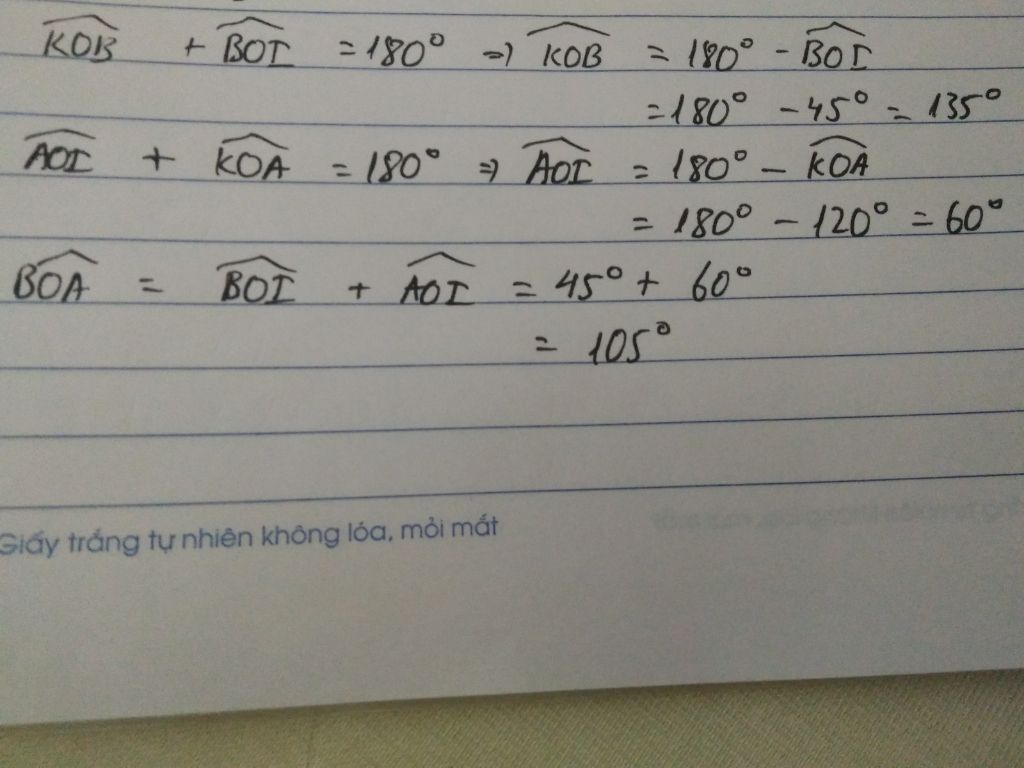 KOB + BOI = 180° => KOB = 180° - BOI
= 180° - 45° = 135°
AOI + KOA = 180° => AOI = 180° - KOA
= 180° - 120° = 60°
BOA = BOI + AOI = 45° + 60°
= 105°
Giấy trắng tự nhiên không lóa, mỏi mắt